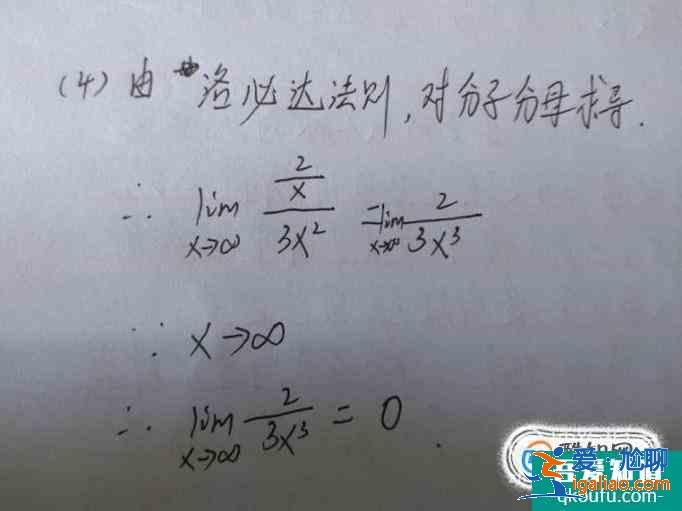 (4) 由洛必达法则,对分子分母求导.
∴ lim x→∞ (2/x)/(3x²) = lim x→∞ 2/(3x³)
∵ x→∞
∴ lim x→∞ 2/(3x³) = 0.
爱·尬聊
igaliao.com
qk9ufu.com